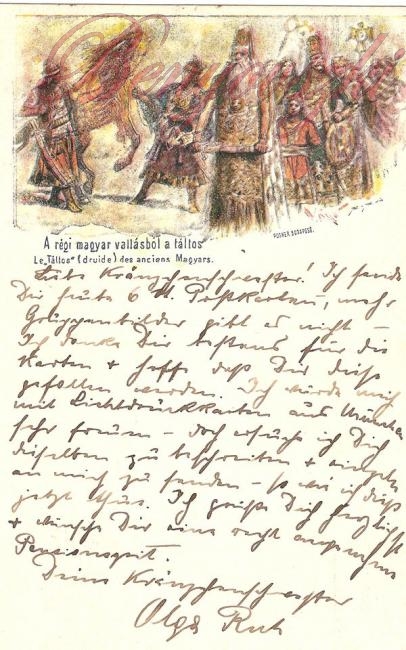 A régi magyar vallásból a táltos
Le „Táltos" (druide) des anciens Magyars.
POSNER BUDAPEST.
Liebe Kränzchenschwester! Ich sende
Dir heute 6 St. Postkarten, mehr
Gruppenbilder gibt es nicht –
Ich danke Dir bestens für die
Karten + hoffe daß Dir diese
gefallen werden. Ich würde mich
mit Lichtdruckkarten aus München
sehr freuen – doch ersuche ich Dich
dieselben zu beschreiben + einzeln
an mich zu senden – so wie ich dieß
jetzt thue. Ich grüße Dich herzlichst
+ wünsche Dir eine recht angenehme
Pensionszeit.
Deine Kränzchenschwester
Olga